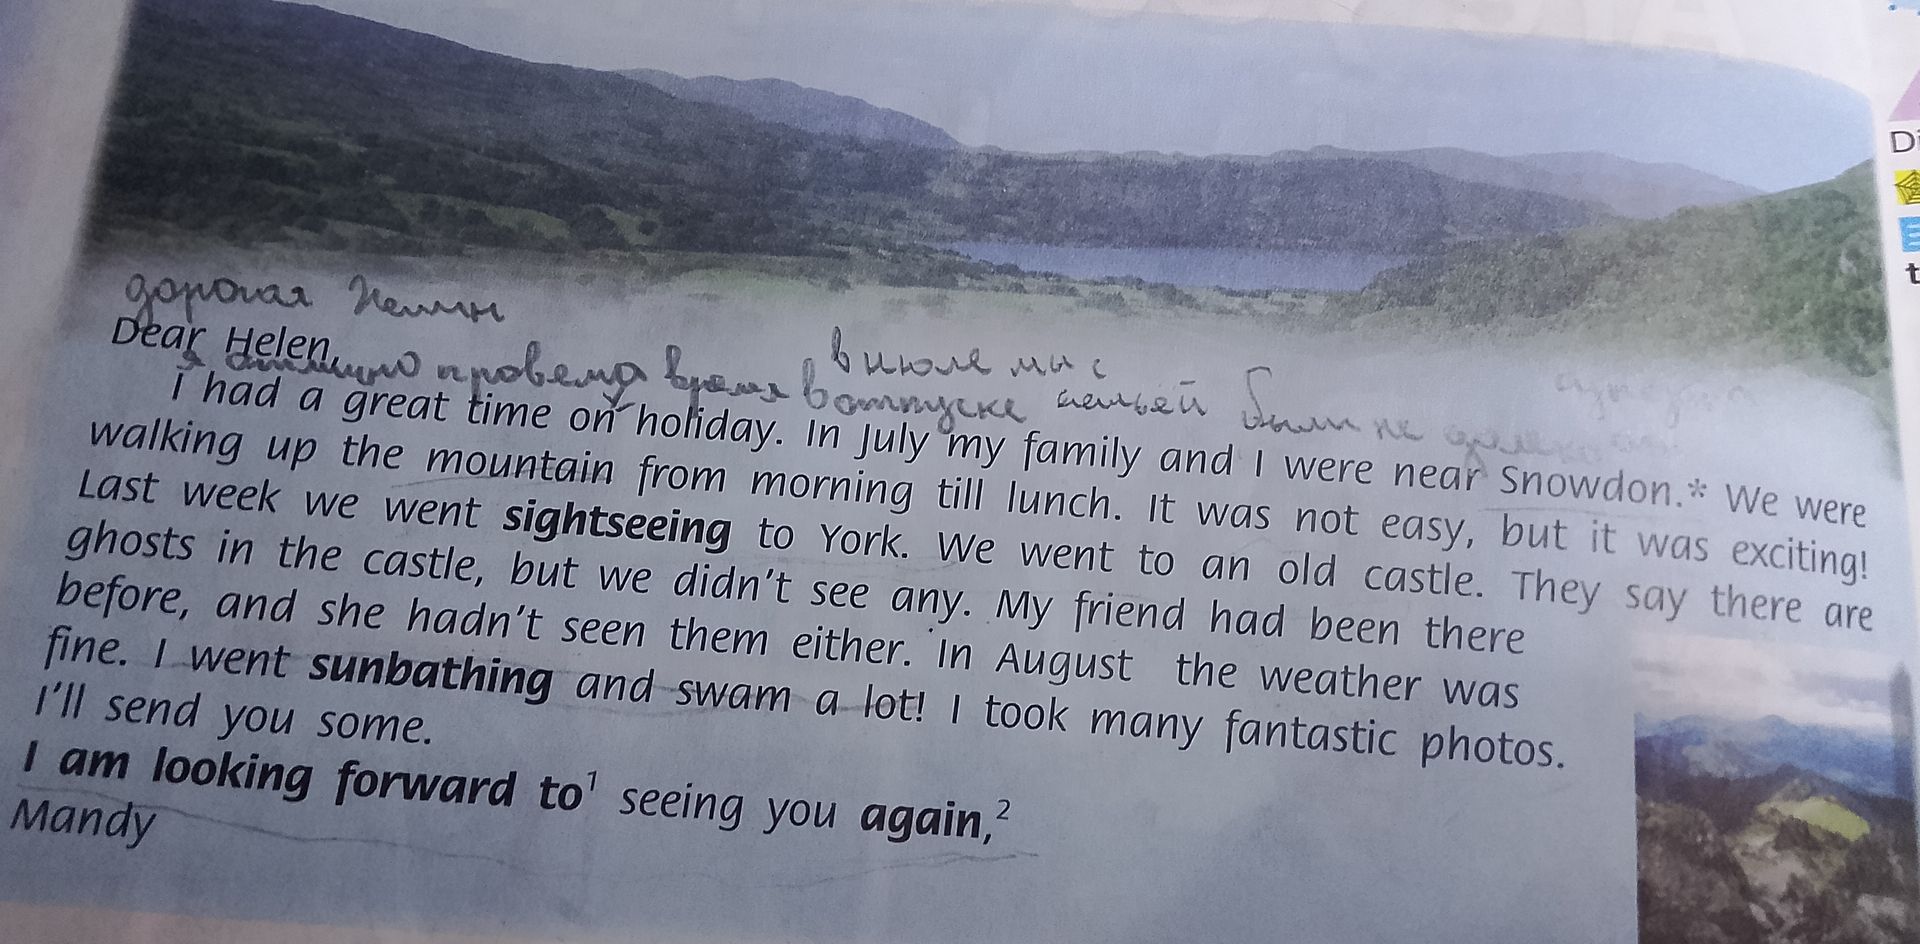 дорогая Хелин
Dear Helen,
я отлично провела время в отпуске в июле мы с семьей были не далеко от
I had a great time on holiday. In July my family and I were near Snowdon.* We were
walking up the mountain from morning till lunch. It was not easy, but it was exciting!
Last week we went sightseeing to York. We went to an old castle. They say there are
ghosts in the castle, but we didn't see any. My friend had been there
before, and she hadn't seen them either. In August the weather was
fine. I went sunbathing and swam a lot! I took many fantastic photos.
I'll send you some.
I am looking forward to¹ seeing you again,²
Mandy
Di
t